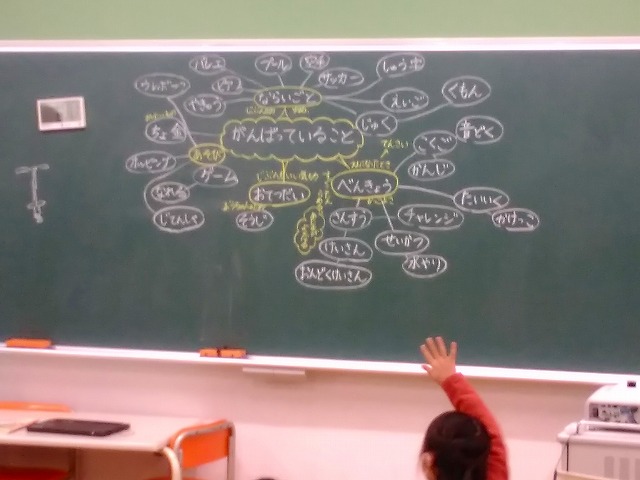 バレエ
プール
サッカー
しゅう字
ピアノ
やきゅう
ならいごと
えいご
くもん
じゅく
がんばっていること
ちょ金
あそび
ゲーム
ホッピング
なわとび
じてんしゃ
おてつだい
そうじ
べんきょう
こくご
音どく
かんじ
たいいく
かけっこ
さんすう
チャレンジ
けいさん
せいかつ
水やり
おんどくけいさん